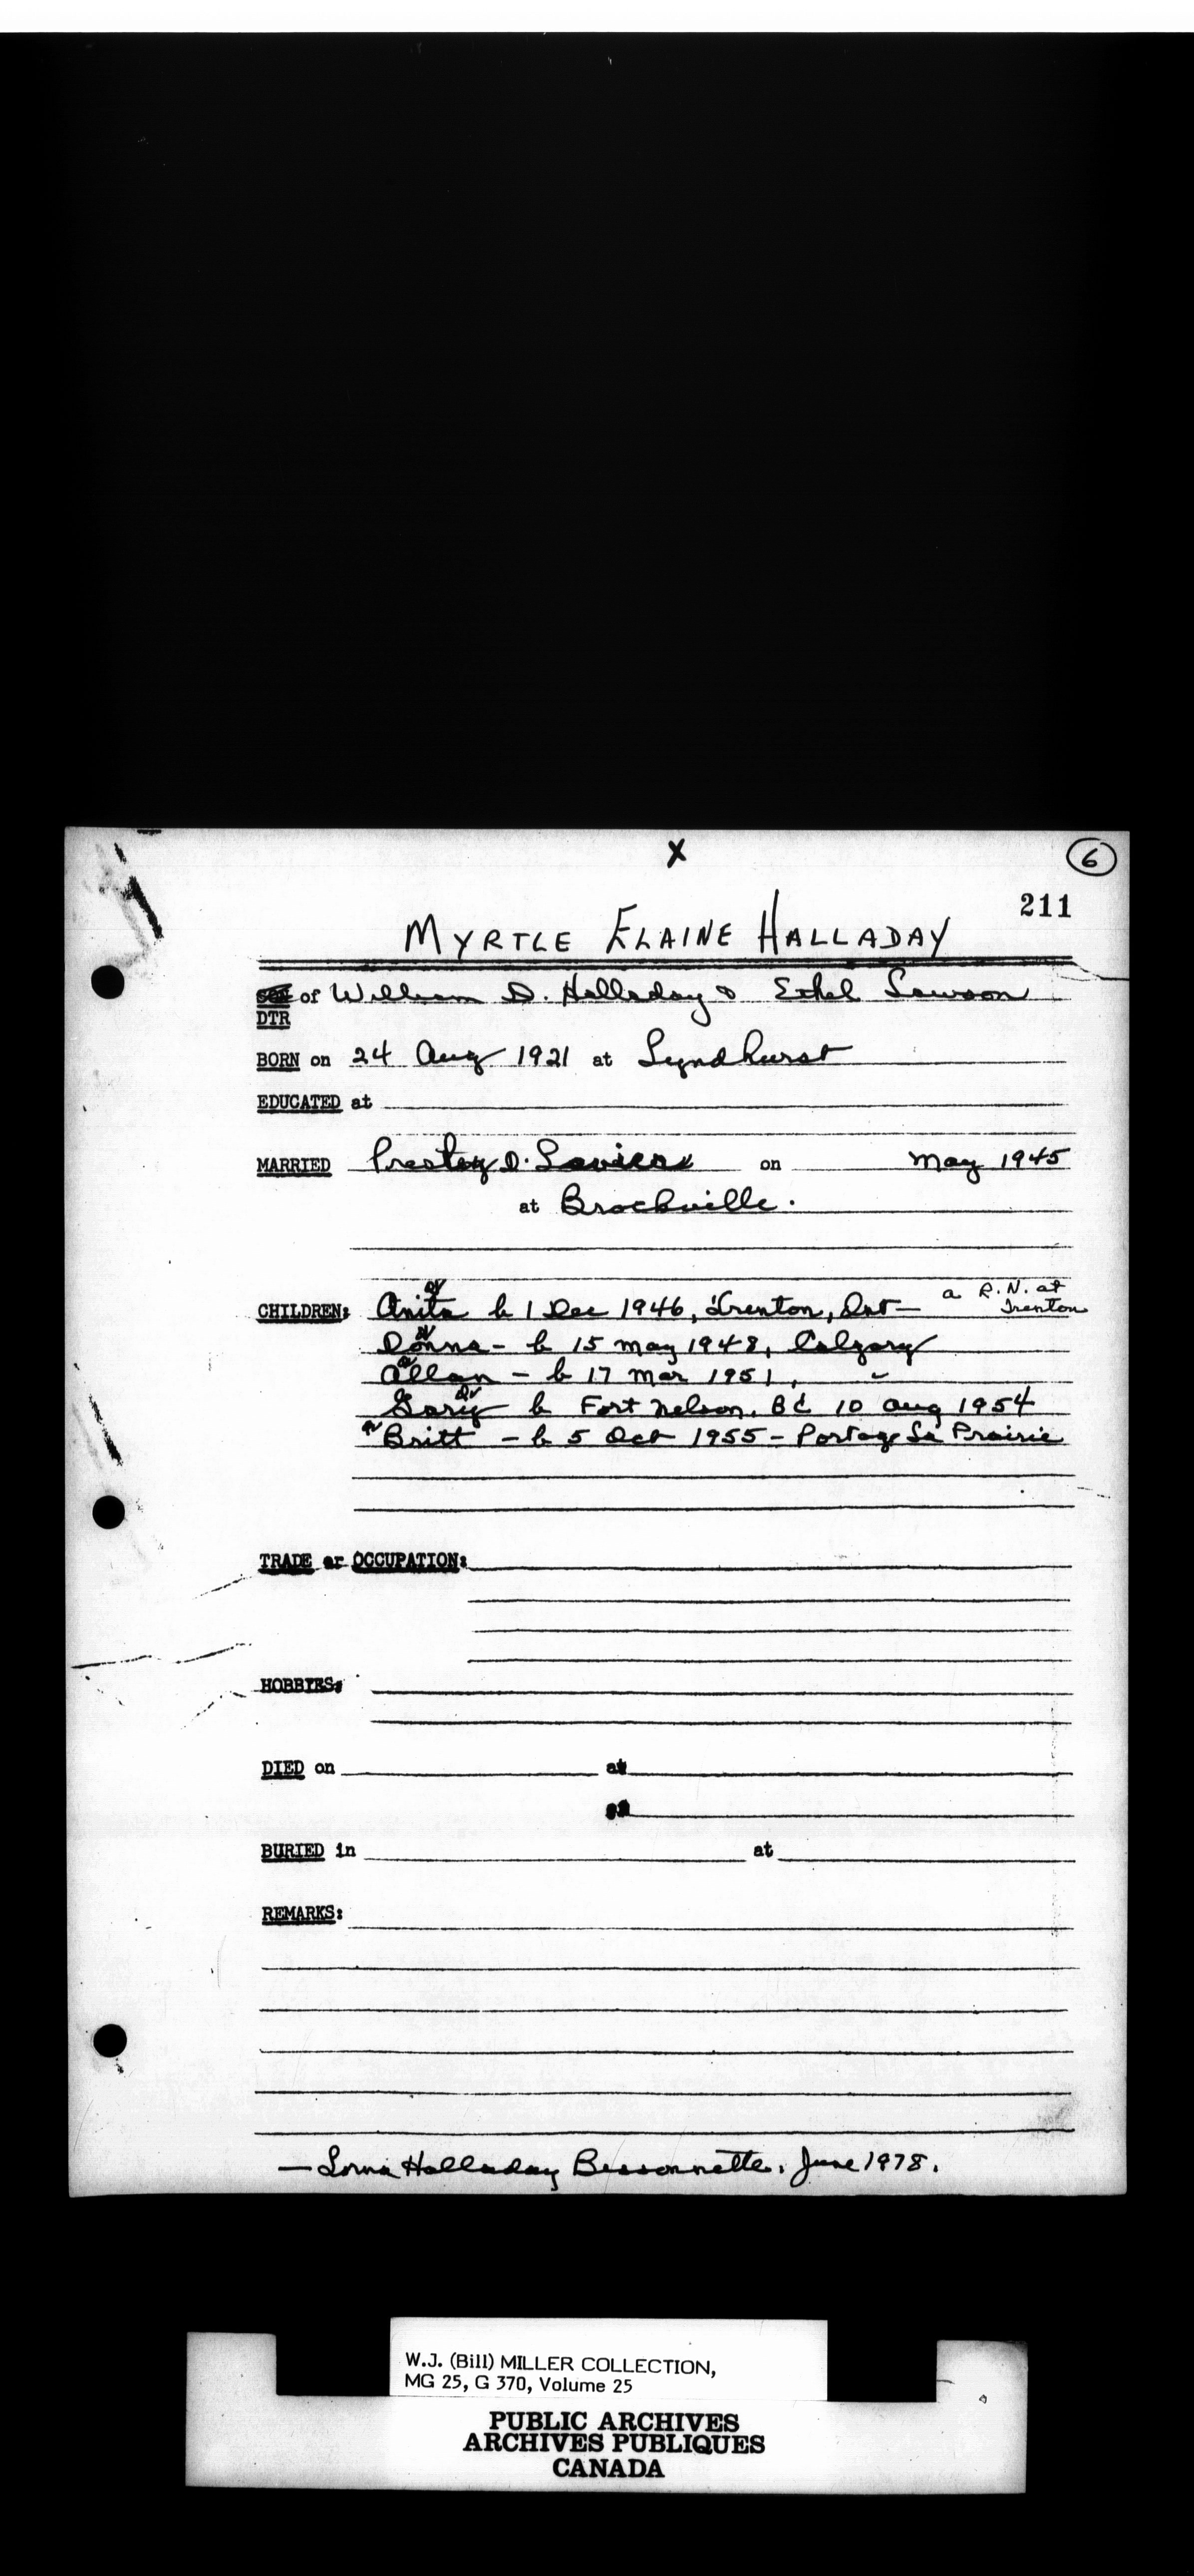 X
6
211
MYRTLE ELAINE HALLADAY
of William D. Halladay & Ethel Lawson
DTR
BORN on 24 Aug 1921 at Lyndhurst
EDUCATED at
MARRIED D. on May 1945
at Brockville.
a R.N. at
CHILDREN: Anita b 1 Dec 1946, Trenton, Ont — Trenton
Donna - b 15 May 1948, Calgary
Allan - b 17 Mar 1951, "
Gary b Fort Nelson, BC 10 Aug 1954
Britt - b 5 Oct 1955 - Portage La Prairie
TRADE or OCCUPATION:
HOBBIES:
DIED on at
BURIED in at
REMARKS:
— Lorna Halladay Bessonnette. June 1978.
W.J. (Bill) MILLER COLLECTION,
MG 25, G 370, Volume 25
PUBLIC ARCHIVES
ARCHIVES PUBLIQUES
CANADA